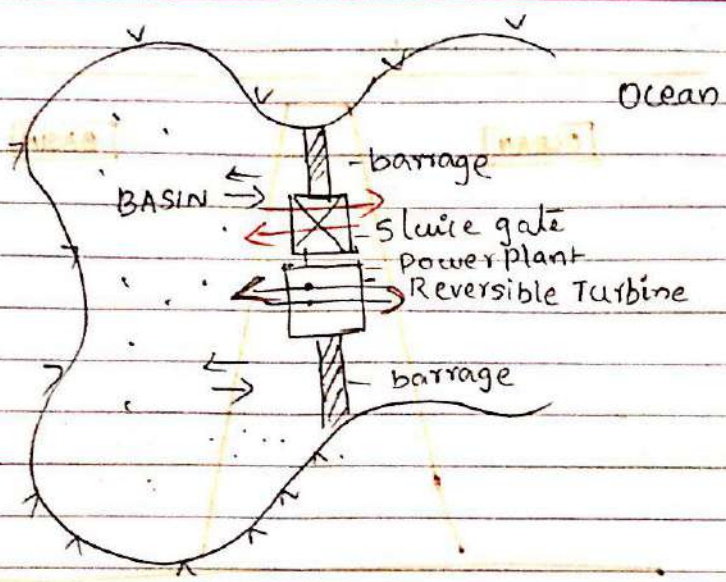 Ocean
barrage
BASIN
Sluice gate
Power plant
Reversible Turbine
barrage